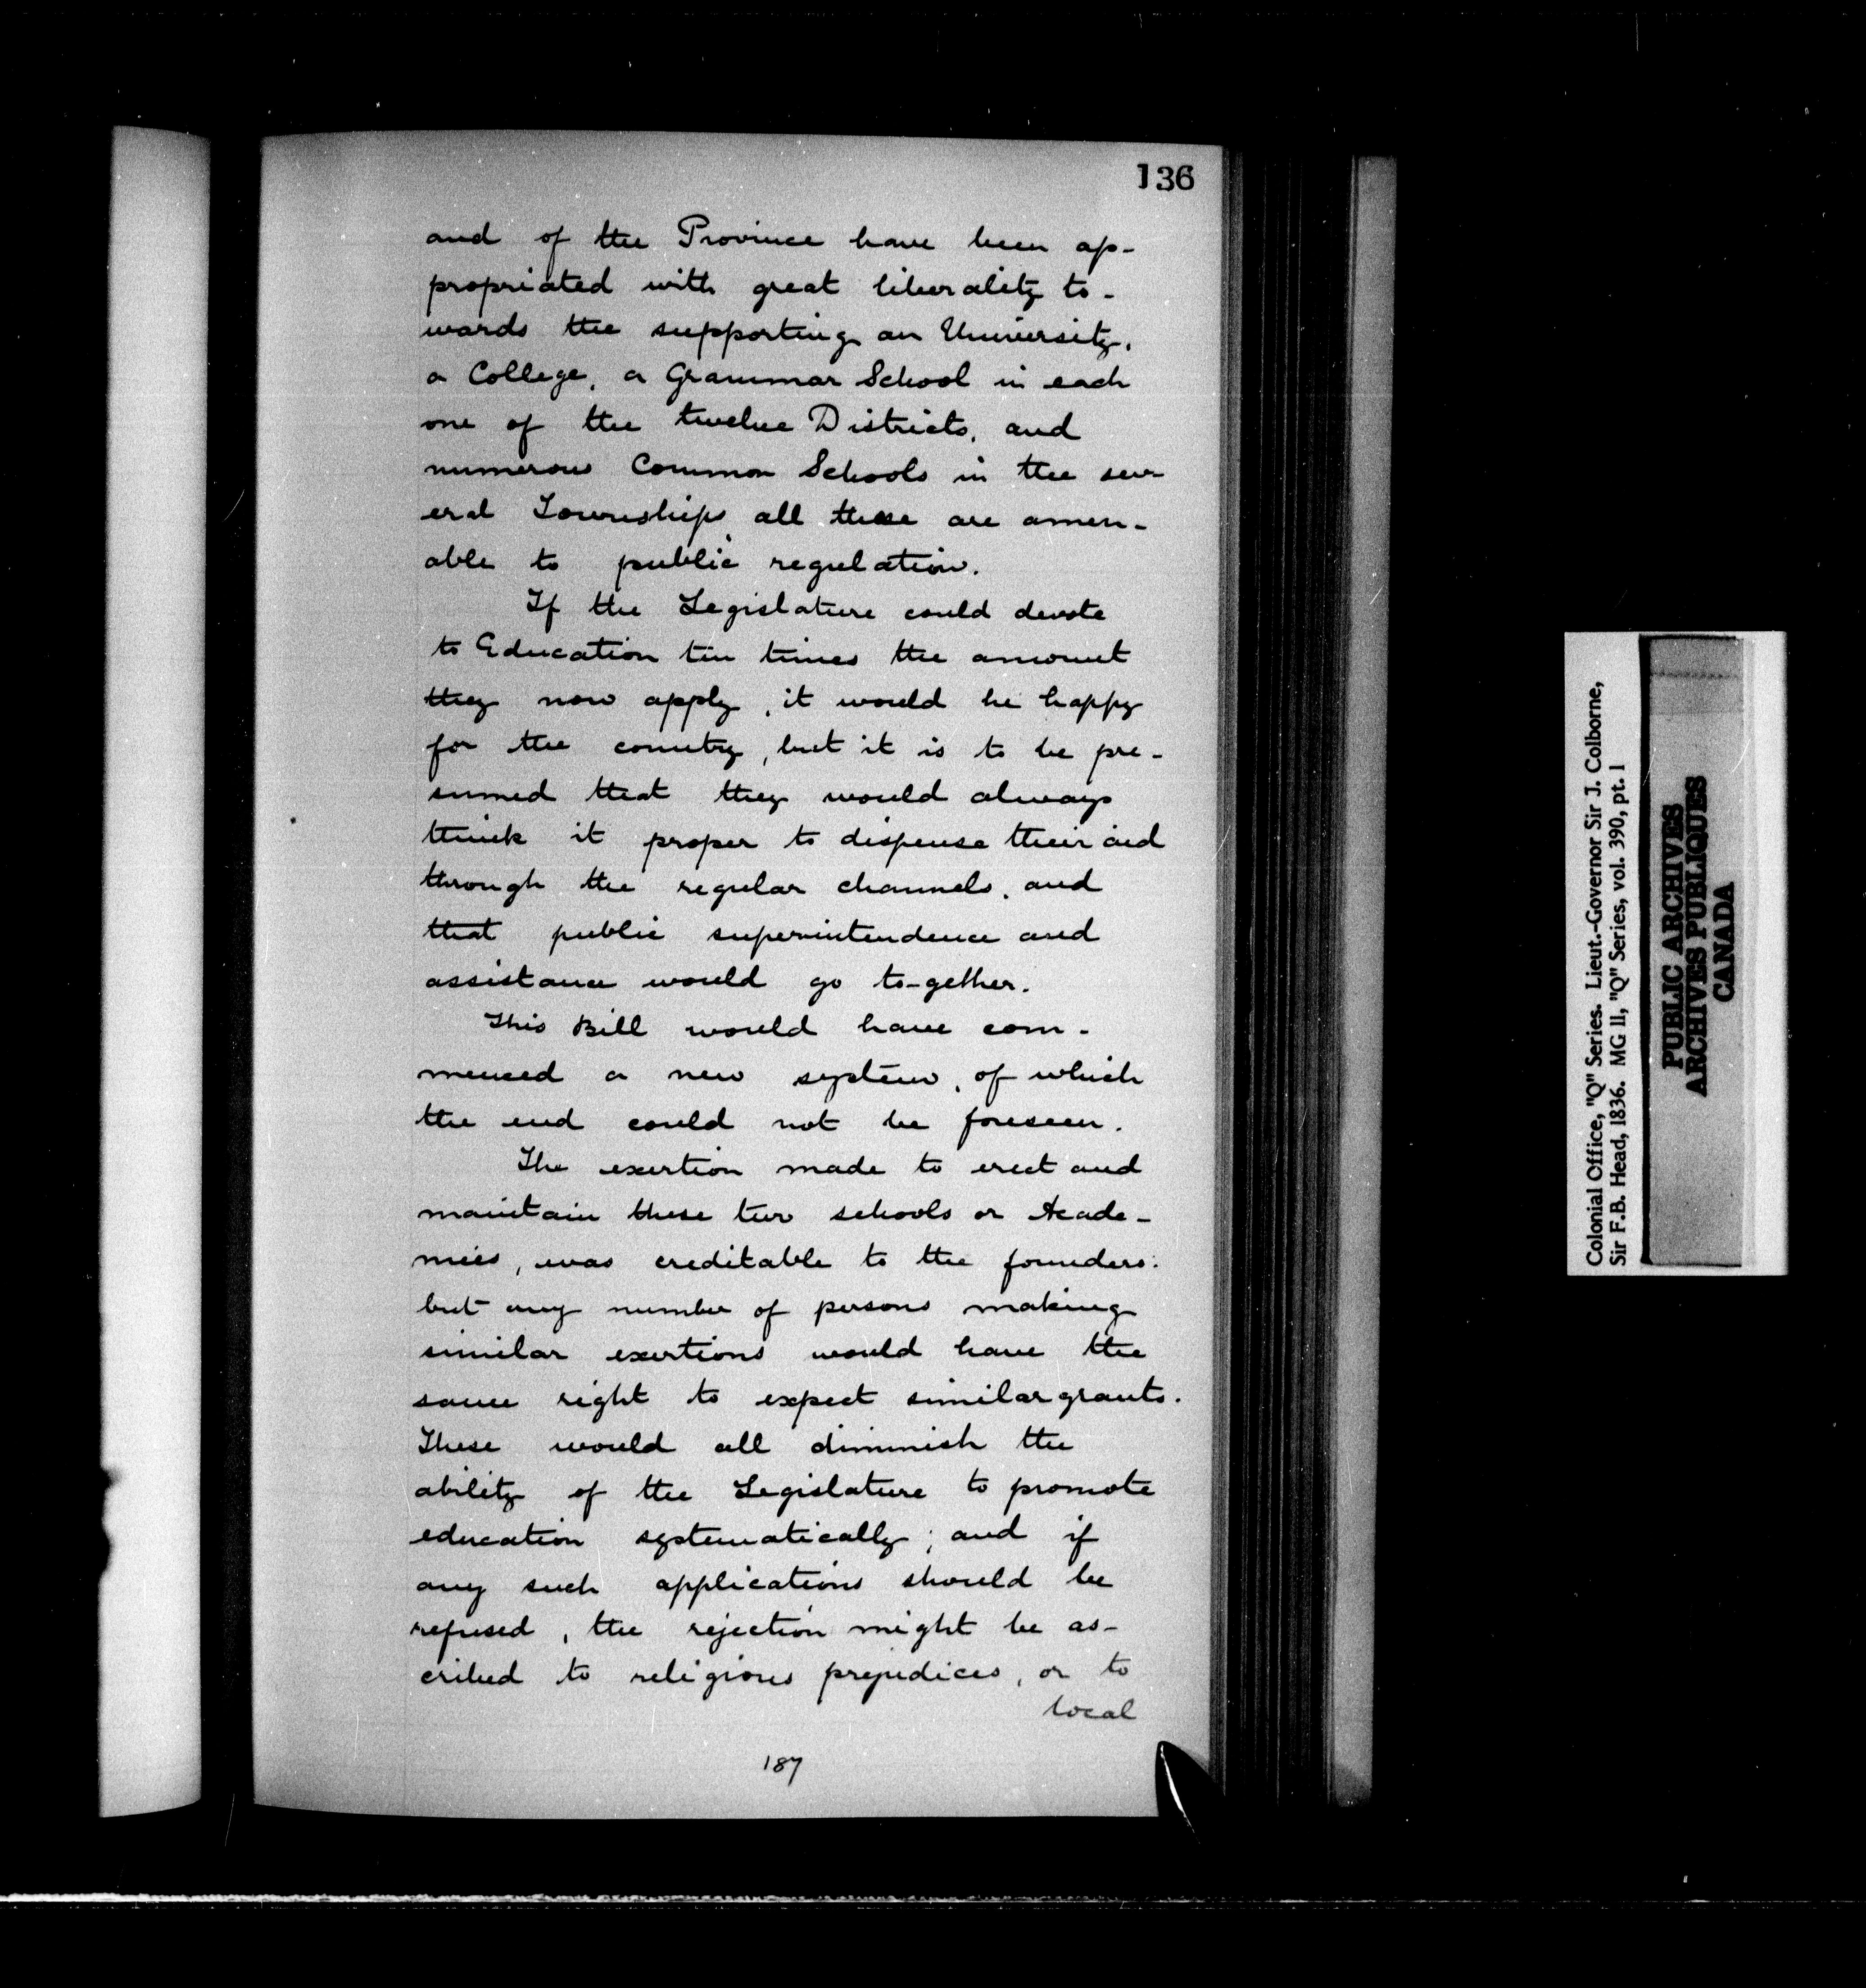 136
and of the Province have been ap-
propriated with great liberality to-
wards the supporting an University,
a College, a Grammar School in each
one of the twelve Districts, and
numerous Common Schools in the sev-
eral Townships, all these are amen-
able to public regulation.
If the Legislature could devote
to Education ten times the amount
they now apply, it would be happy
for the country, but it is to be pre-
sumed that they would always
think it proper to dispense their aid
through the regular channels, and
that public superintendence and
assistance would go to-gether.
This Bill would have com-
menced a new system, of which
the end could not be foreseen.
The exertion made to erect and
maintain these two schools or Acade-
mies, was creditable to the founders:
but any number of persons making
similar exertions would have the
same right to expect similar grants.
These would all diminish the
ability of the Legislature to promote
education systematically; and if
any such applications should be
refused, the rejection might be as-
cribed to religious prejudices, or to
local
187
Colonial Office, "Q" Series. Lieut.-Governor Sir J. Colborne,
Sir F.B. Head, 1836. MG 11, "Q" Series, vol. 390, pt. 1
PUBLIC ARCHIVES
ARCHIVES PUBLIQUES
CANADA